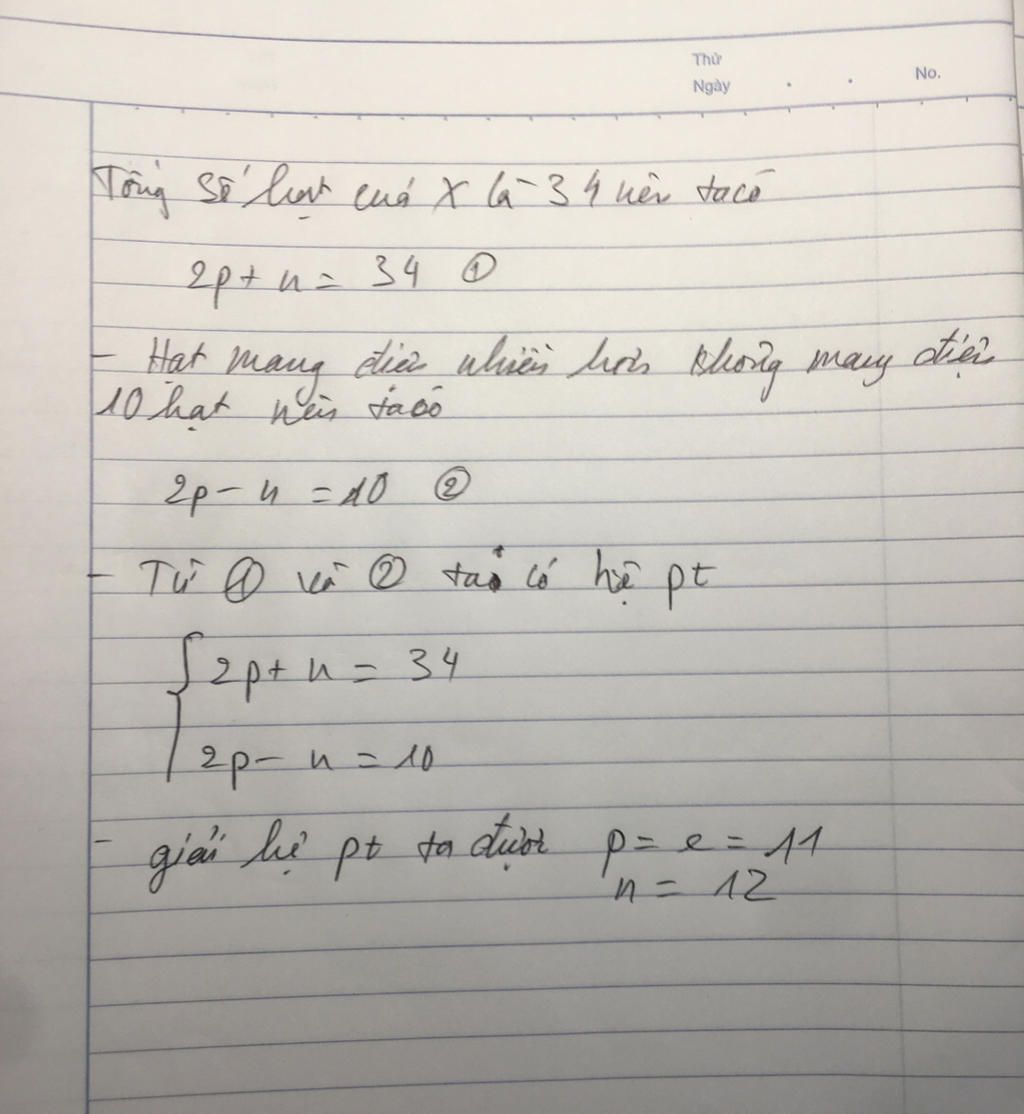 Thứ
Ngày . . No.
Tổng số hạt của X là 34 nên ta có
2p + n = 34 ①
- Hạt mang điện nhiều hơn không mang điện
10 hạt nên ta có
2p - n = 10 ②
- Từ ① và ② ta có hệ pt
2p + n = 34
2p - n = 10
- giải hệ pt ta được p = e = 11
n = 12